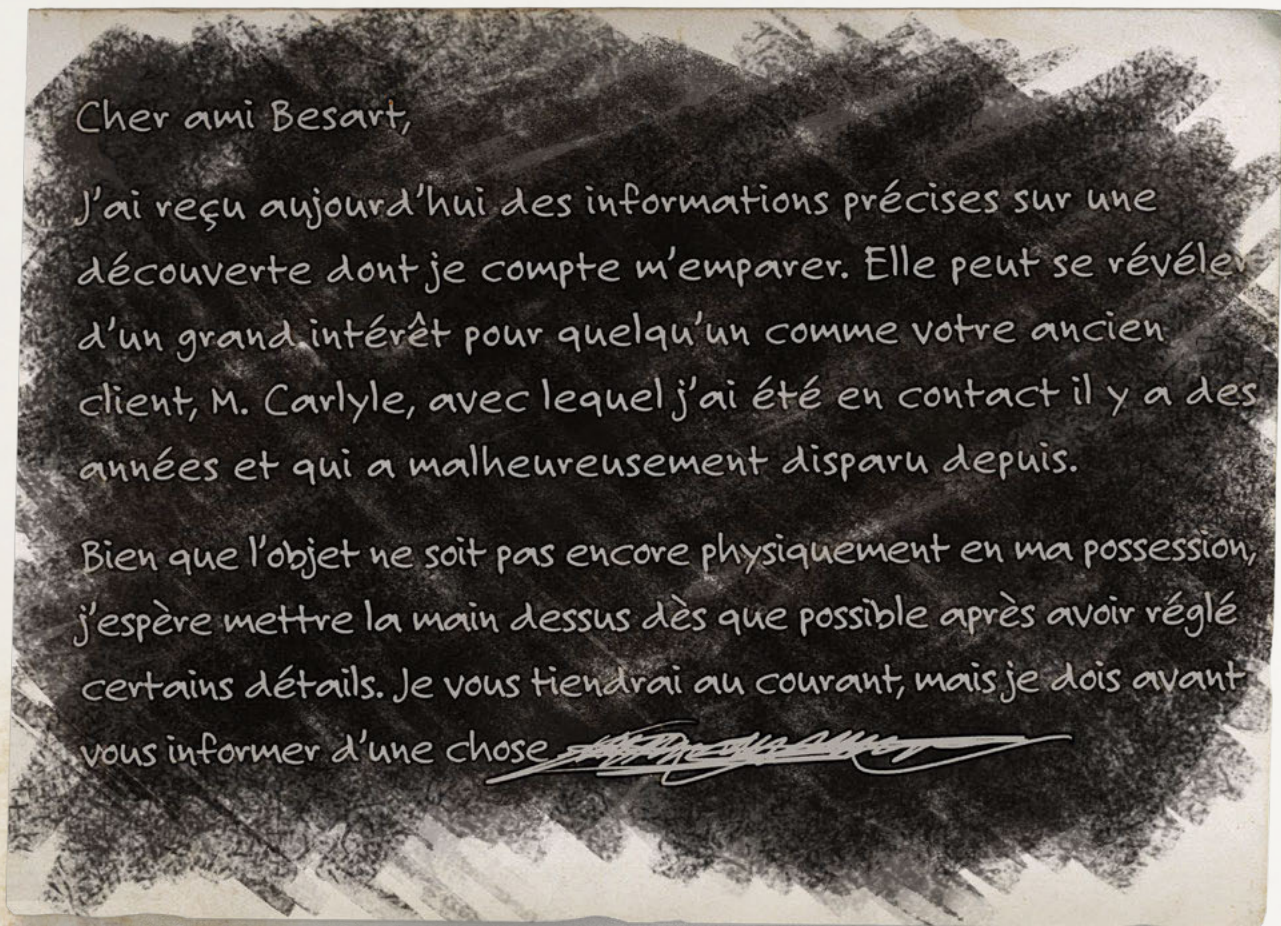 Cher ami Besart,
J'ai reçu aujourd'hui des informations précises sur une
découverte dont je compte m'emparer. Elle peut se révéler
d'un grand intérêt pour quelqu'un comme votre ancien
client, M. Carlyle, avec lequel j'ai été en contact il y a des
années et qui a malheureusement disparu depuis.
Bien que l'objet ne soit pas encore physiquement en ma possession,
j'espère mettre la main dessus dès que possible après avoir réglé
certains détails. Je vous tiendrai au courant, mais je dois avant
vous informer d'une chose